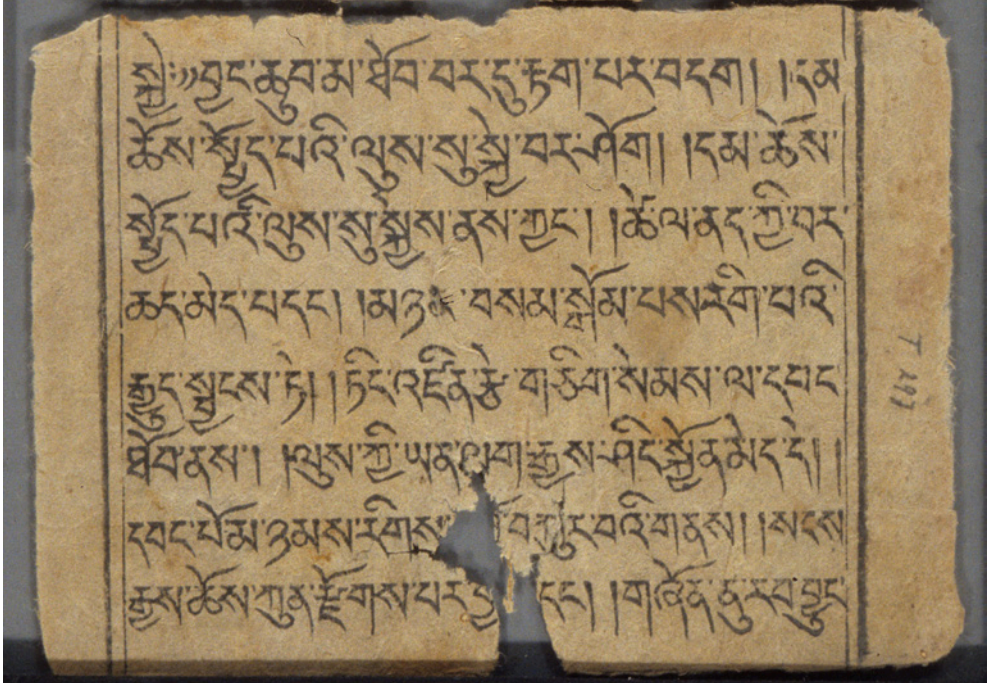 སྐྱེ་༌བྱང་ཆུབ་མ་ཐོབ་བར་དུ་རྟག་པར་བདག། །དམ
ཆོས་སྤྱོད་པའི་ལུས་སུ་སྐྱེ་བར་ཤོག། །དམ་ཆོས་
སྤྱོད་པའི་ལུས་སུ་སྐྱེས་ནས་ཀྱང་། །ཚེ་ལ་ནད་ཀྱི་བར་
ཆད་མེད་པ་དང་། །མཉན་བསམ་སྒོམ་པས་རིག་པའི་
རྒྱུད་སྦྱངས་ཏེ། །ཏིང་འཛིན་རྩེ་གཅིག་སེམས་ལ་དབང
ཐོབ་ནས། །ལུས་ཀྱི་ཡན་ལག་རྒྱས་ཤིང་སྐྱོན་མེད་དེ། །
དབང་པོམ་ཉམས་རིགས་ བཀུར་བའི་གནས། །སངས
རྒྱས་ཆོས་ཀུན་རྫོགས་པར་བྱ དང་། །གཞོན་ནུར་རབ་བྱུང་